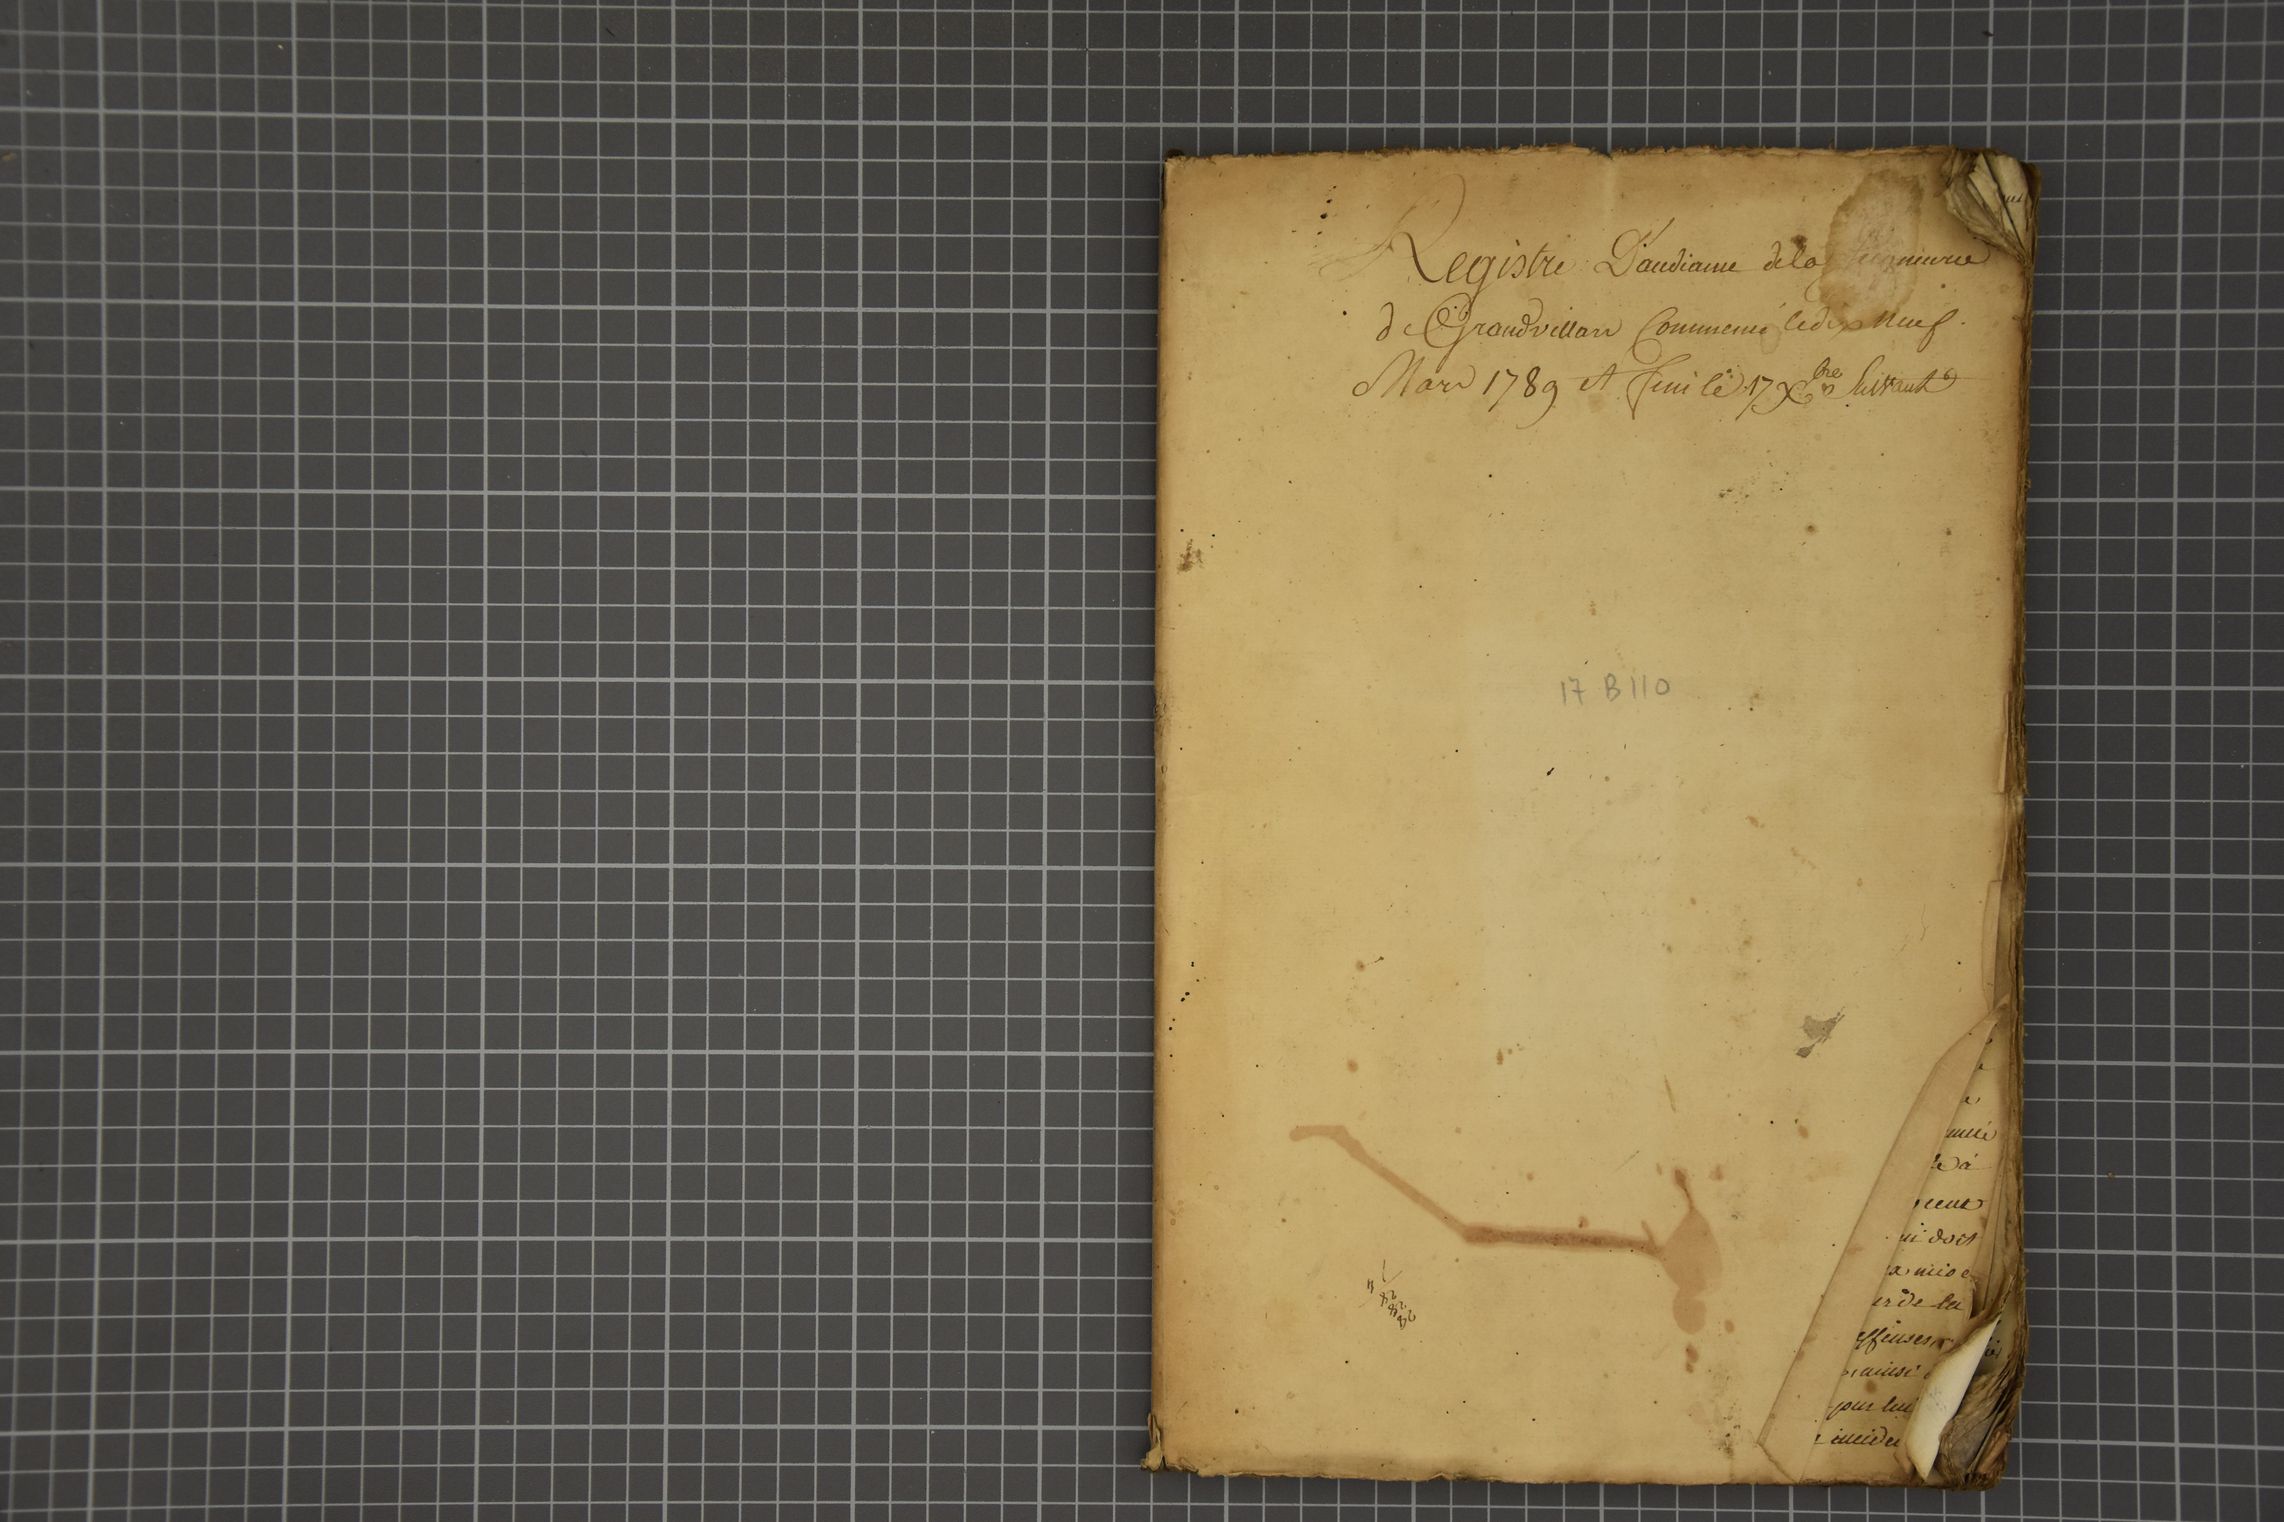 Registre D'audiance de la Seigneurie
de Grandvillars Commencé le dix neuf
Mars 1789 et fini le 17 Xbre Suivant
17 B 110
ni doit
er de la
effenses
ainsi
par lui